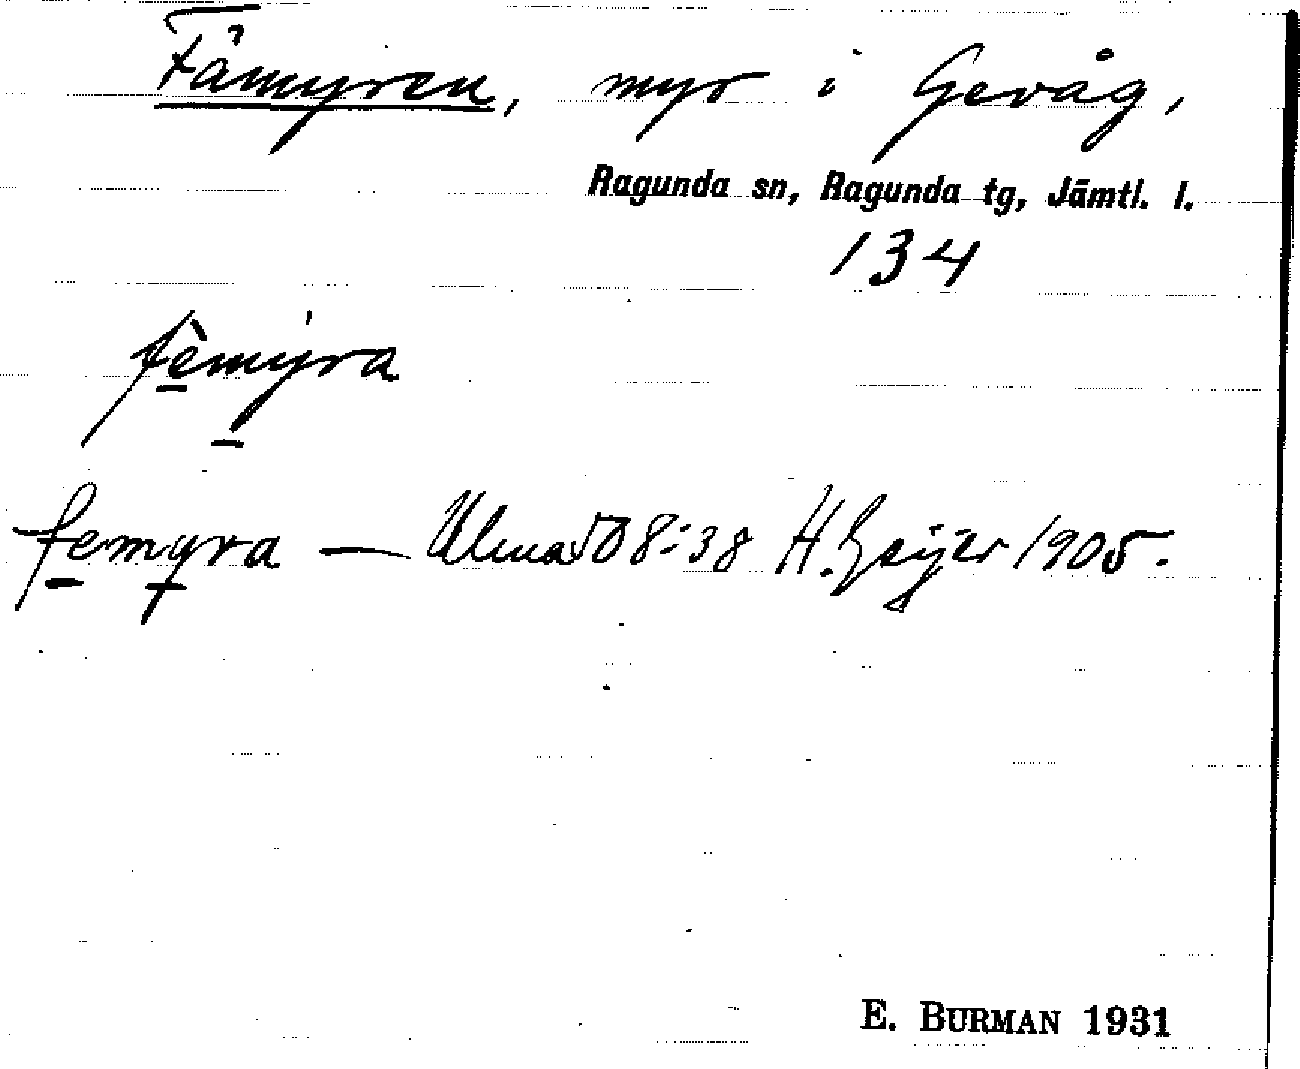 Fämyren, myr i Gevåg,
Ragunda sn, Ragunda tg, Jämtl. l.
134
fè̱my̱ra
fe̱my̱ra — Ulma 508:38 H. Geijer 1905.
E. BURMAN 1931